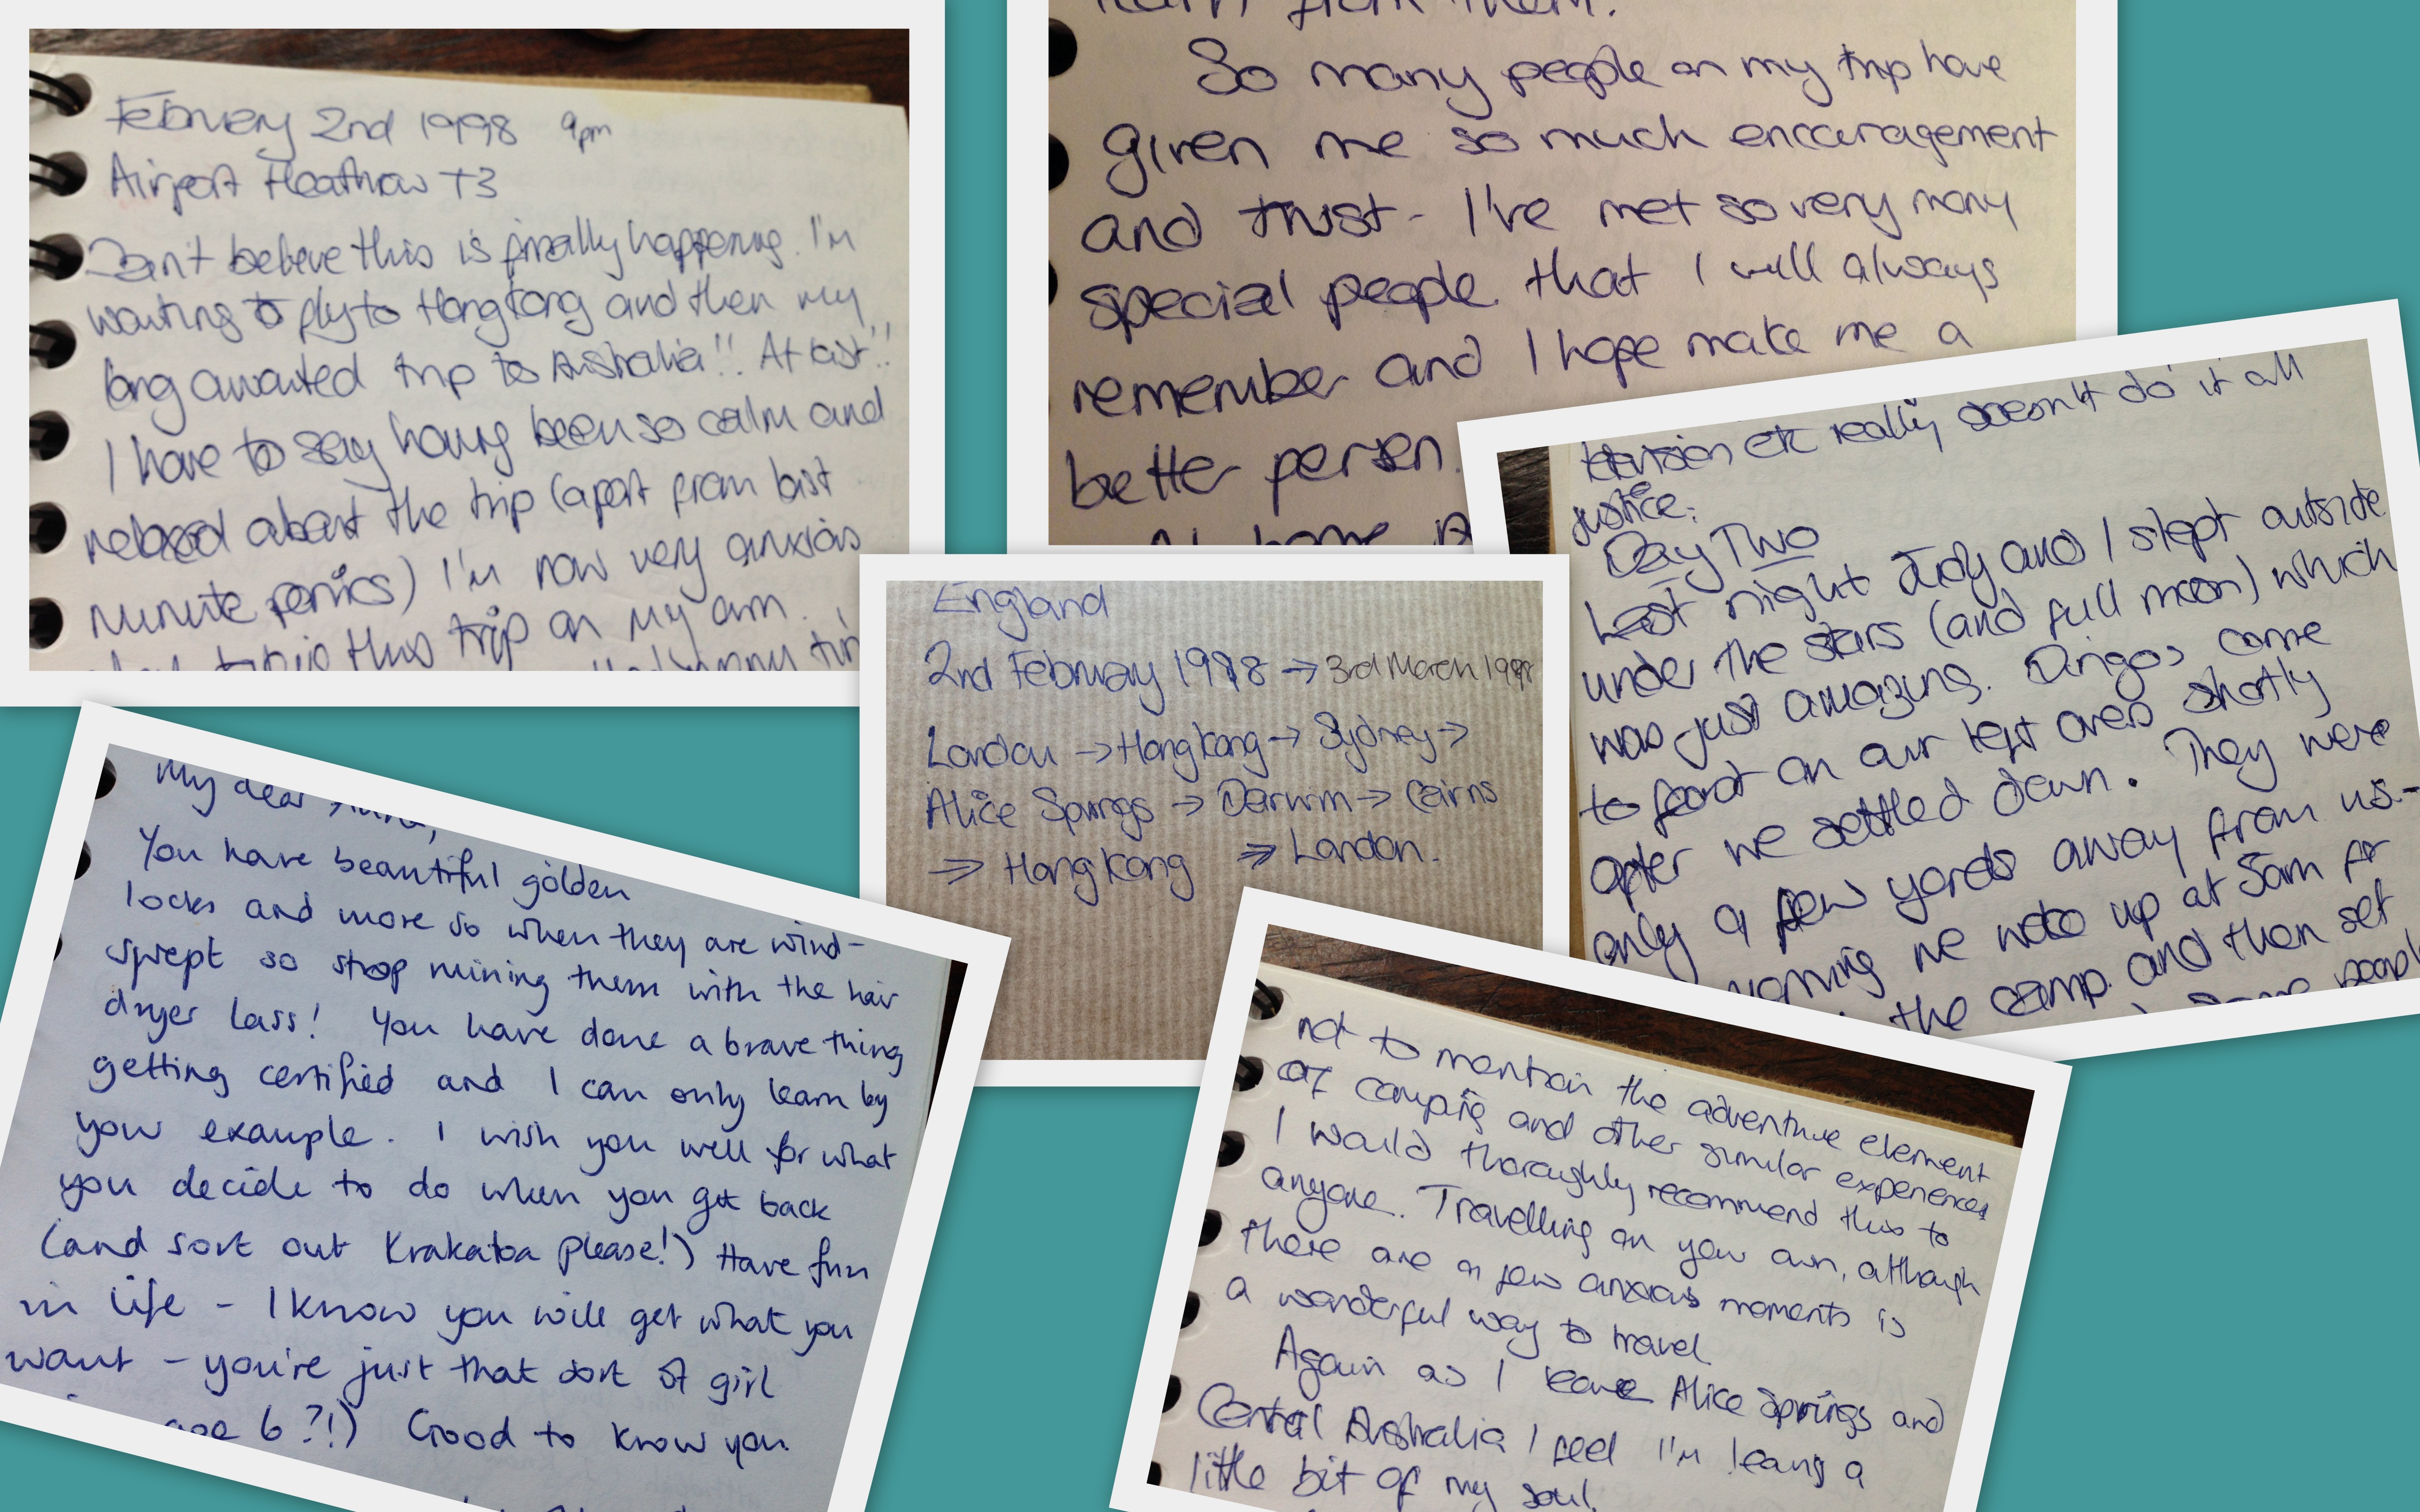 February 2nd 1998 9pm
Airport Heathrow T3
Can't believe this is finally happening. I'm
waiting to fly to Hong Kong and then my
long awaited trip to Australia!! At last!!
I have to say having been so calm and
relaxed about the trip (apart from last
minute panics) I'm now very anxious
this trip on my own.
from them.
So many people on my trip have
given me so much encouragement
and trust - I've met so very many
special people that I will always
remember and I hope make me a
better person.
At home
etc really doesn't do it all
justice.
Day Two
Last night Judy and I slept outside
under the stars (and full moon) which
was just amazing. Dingos came
to feast on our left overs shortly
after we settled down. They were
only a few yards away from us -
morning we woke up at 5am for
the camp and then set
some people
England
2nd February 1998 → 3rd March 1998
London → Hong Kong → Sydney →
Alice Springs → Darwin → Cairns
→ Hong Kong → London.
My dear
You have beautiful golden
locks and more so when they are wind-
swept so stop ruining them with the hair
dryer lass! You have done a brave thing
getting certified and I can only learn by
your example. I wish you well for what
you decide to do when you get back
(and sort out Krakatoa please!) Have fun
in life - I know you will get what you
want - you're just that sort of girl
age 6?!) Good to know you
not to mention the adventure element
of camping and other similar experiences
I would thoroughly recommend this to
anyone. Travelling on your own, although
there are a few anxious moments is
a wonderful way to travel.
Again as I leave Alice Springs and
Central Australia I feel I'm leaving a
little bit of my soul.